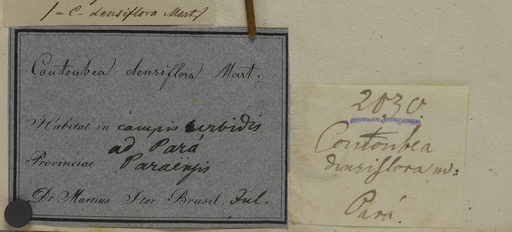 /-C- densiflora Mart./
Coutoubea densiflora Mart.
Habitat in campis herbidis
ad Pará
Provinciae Paraënsis
De Martius Iter Brasil. Jul.
2030.
Coutoubea
densiflora m:
Pará.